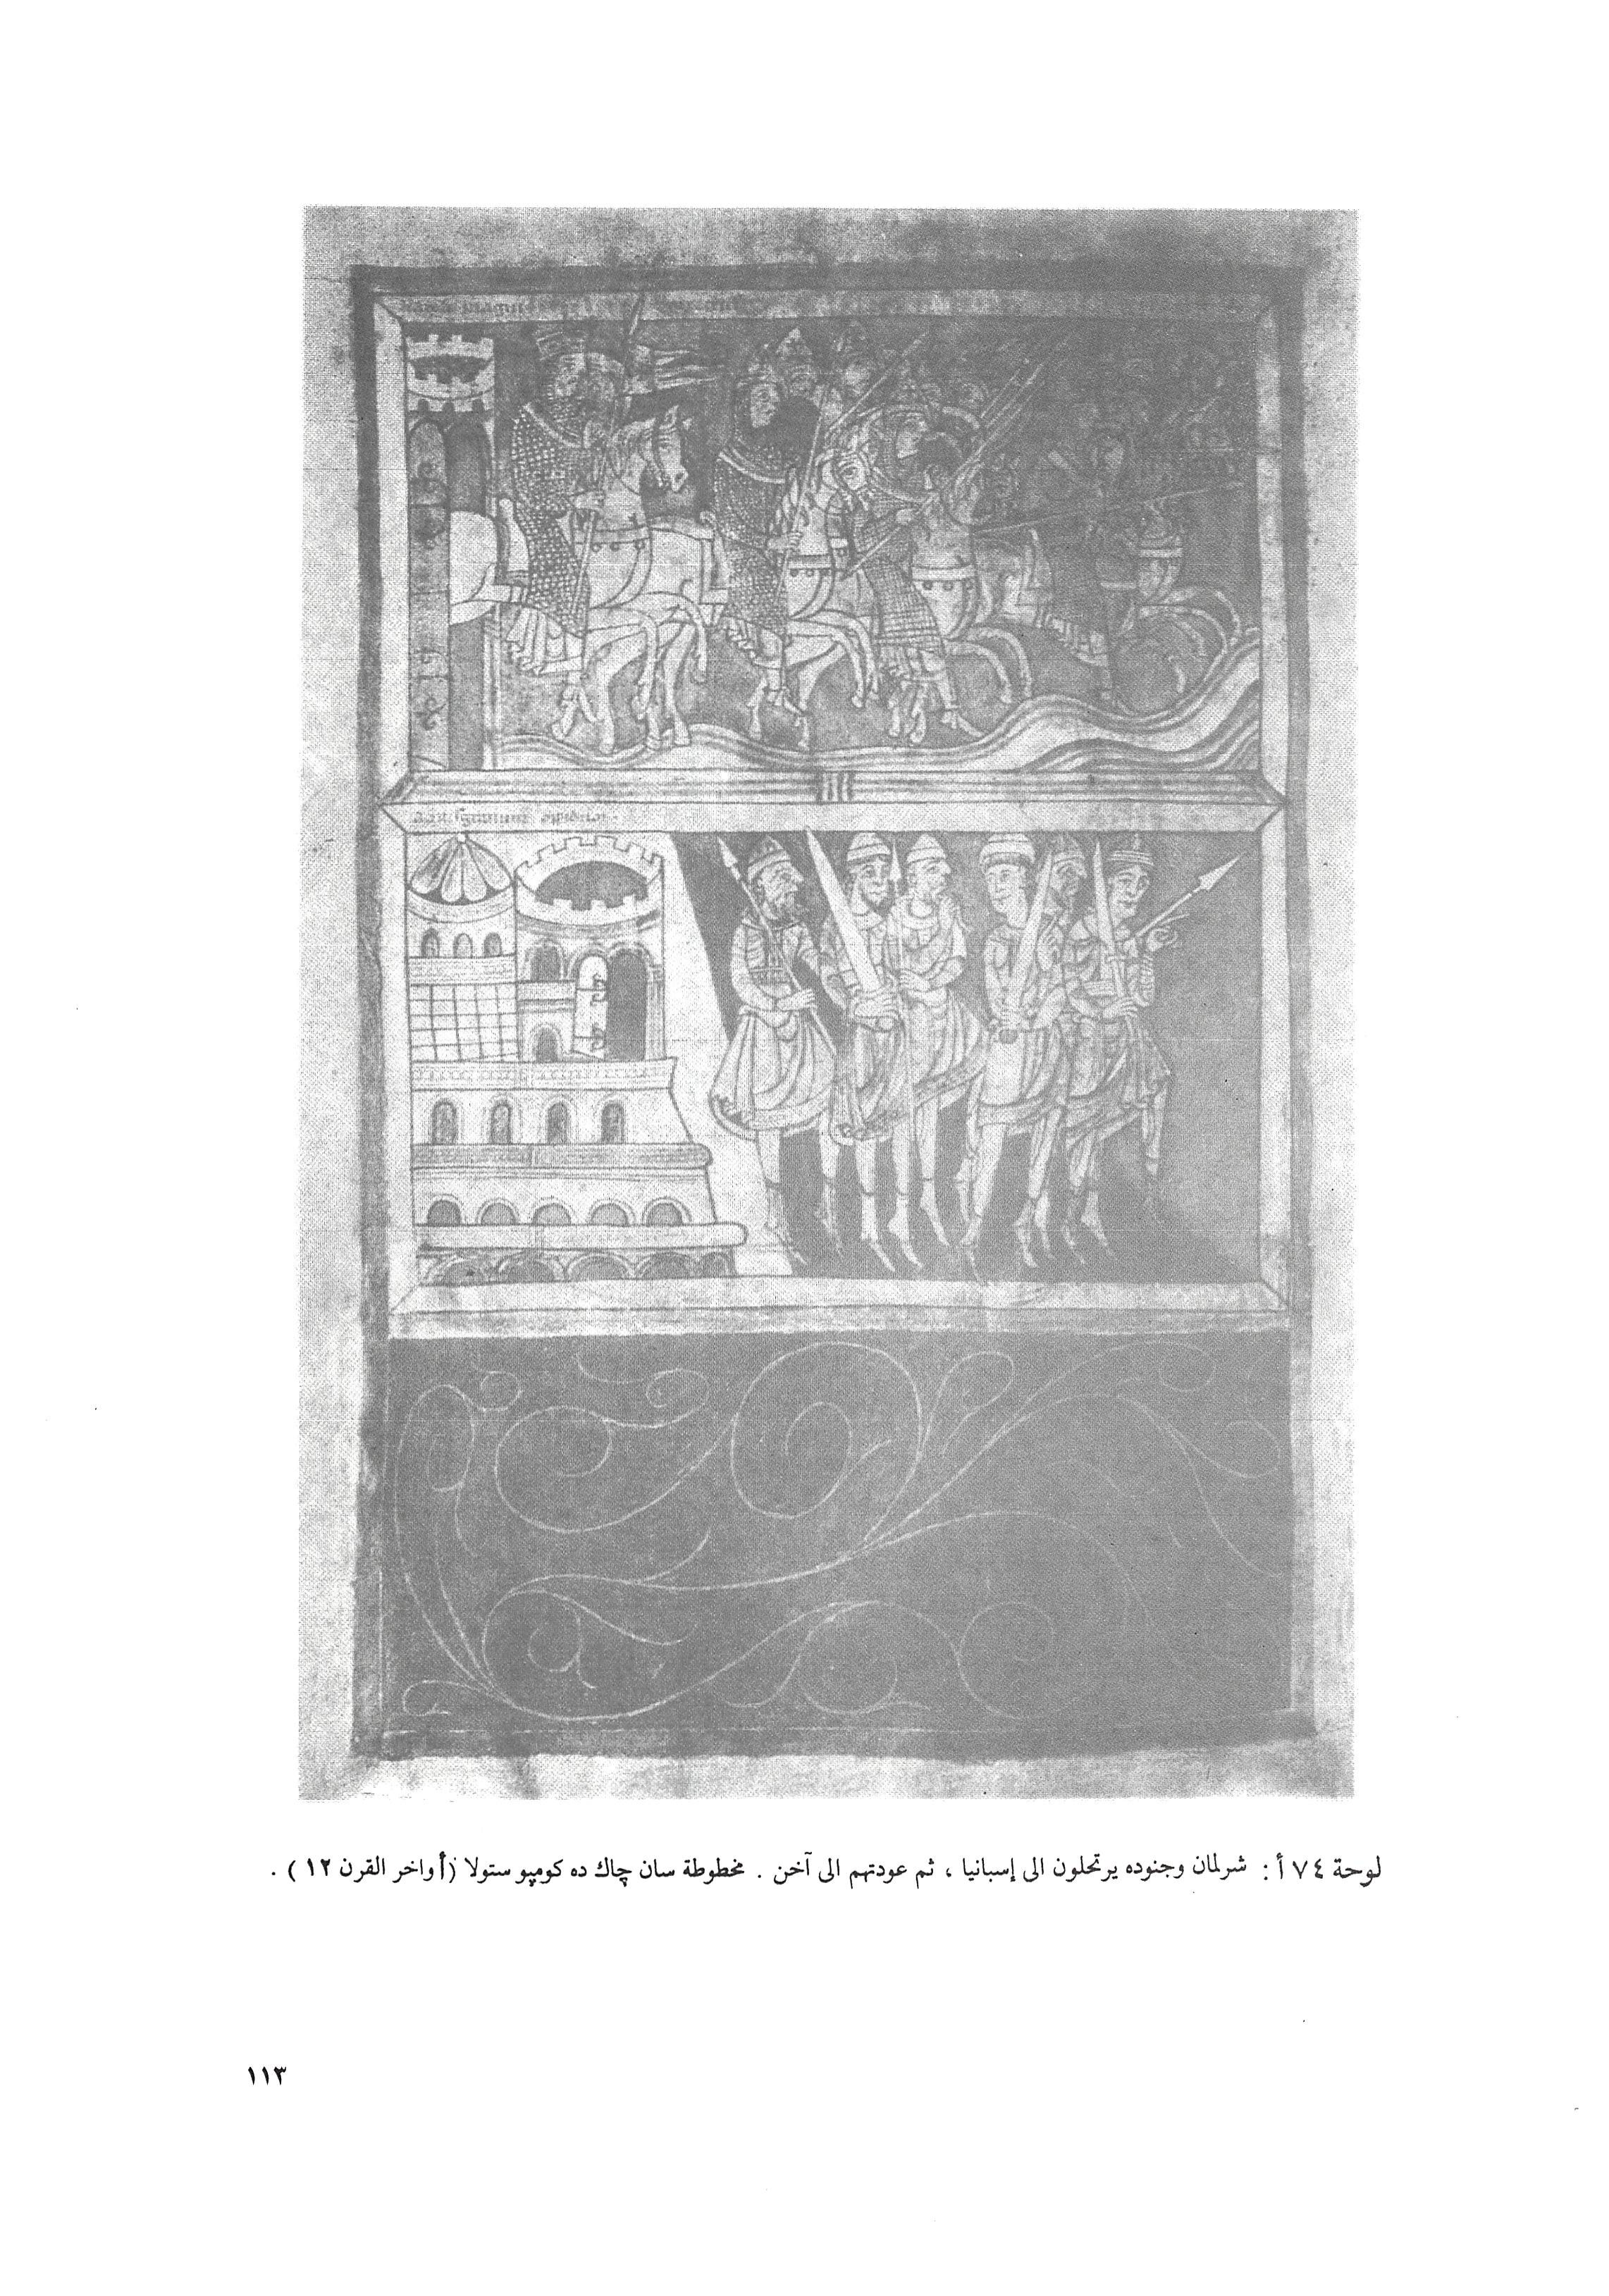 لوحة ٧٤ أ : شرلمان وجنوده يرتحلون الى إسبانيا ، ثم عودتهم الى آخن . مخطوطة سان چاك ده كومپوستولا (أواخر القرن ١٢) .
١١٣